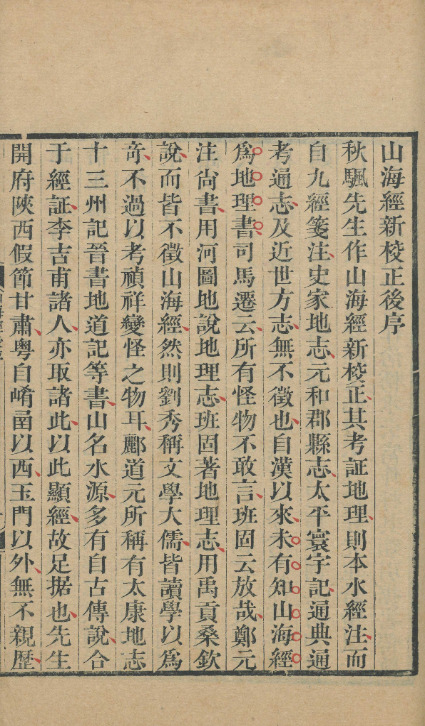 山海經新校正後序
秋颿先生作山海經新校正其考証地理則本水經注而
自九經箋注史家地志元和郡縣志太平寰宇記通典通
考通志及近世方志無不徵也自漢以來未有知山海經
爲地理書司馬遷云所有怪物不敢言班固云放哉鄭元
注尚書用河圖地說地理志班固著地理志用禹貢桑欽
說而皆不徵山海經然則劉秀稱文學大儒皆讀學以爲
奇不過以考禎祥變怪之物耳酈道元所稱有太康地志
十三州記晉書地道記等書山名水源多有自古傳說合
于經証李吉甫諸人亦取諸此以此顯經故足据也先生
開府陝西假節甘肅粵自崤函以西玉門以外無不親歷